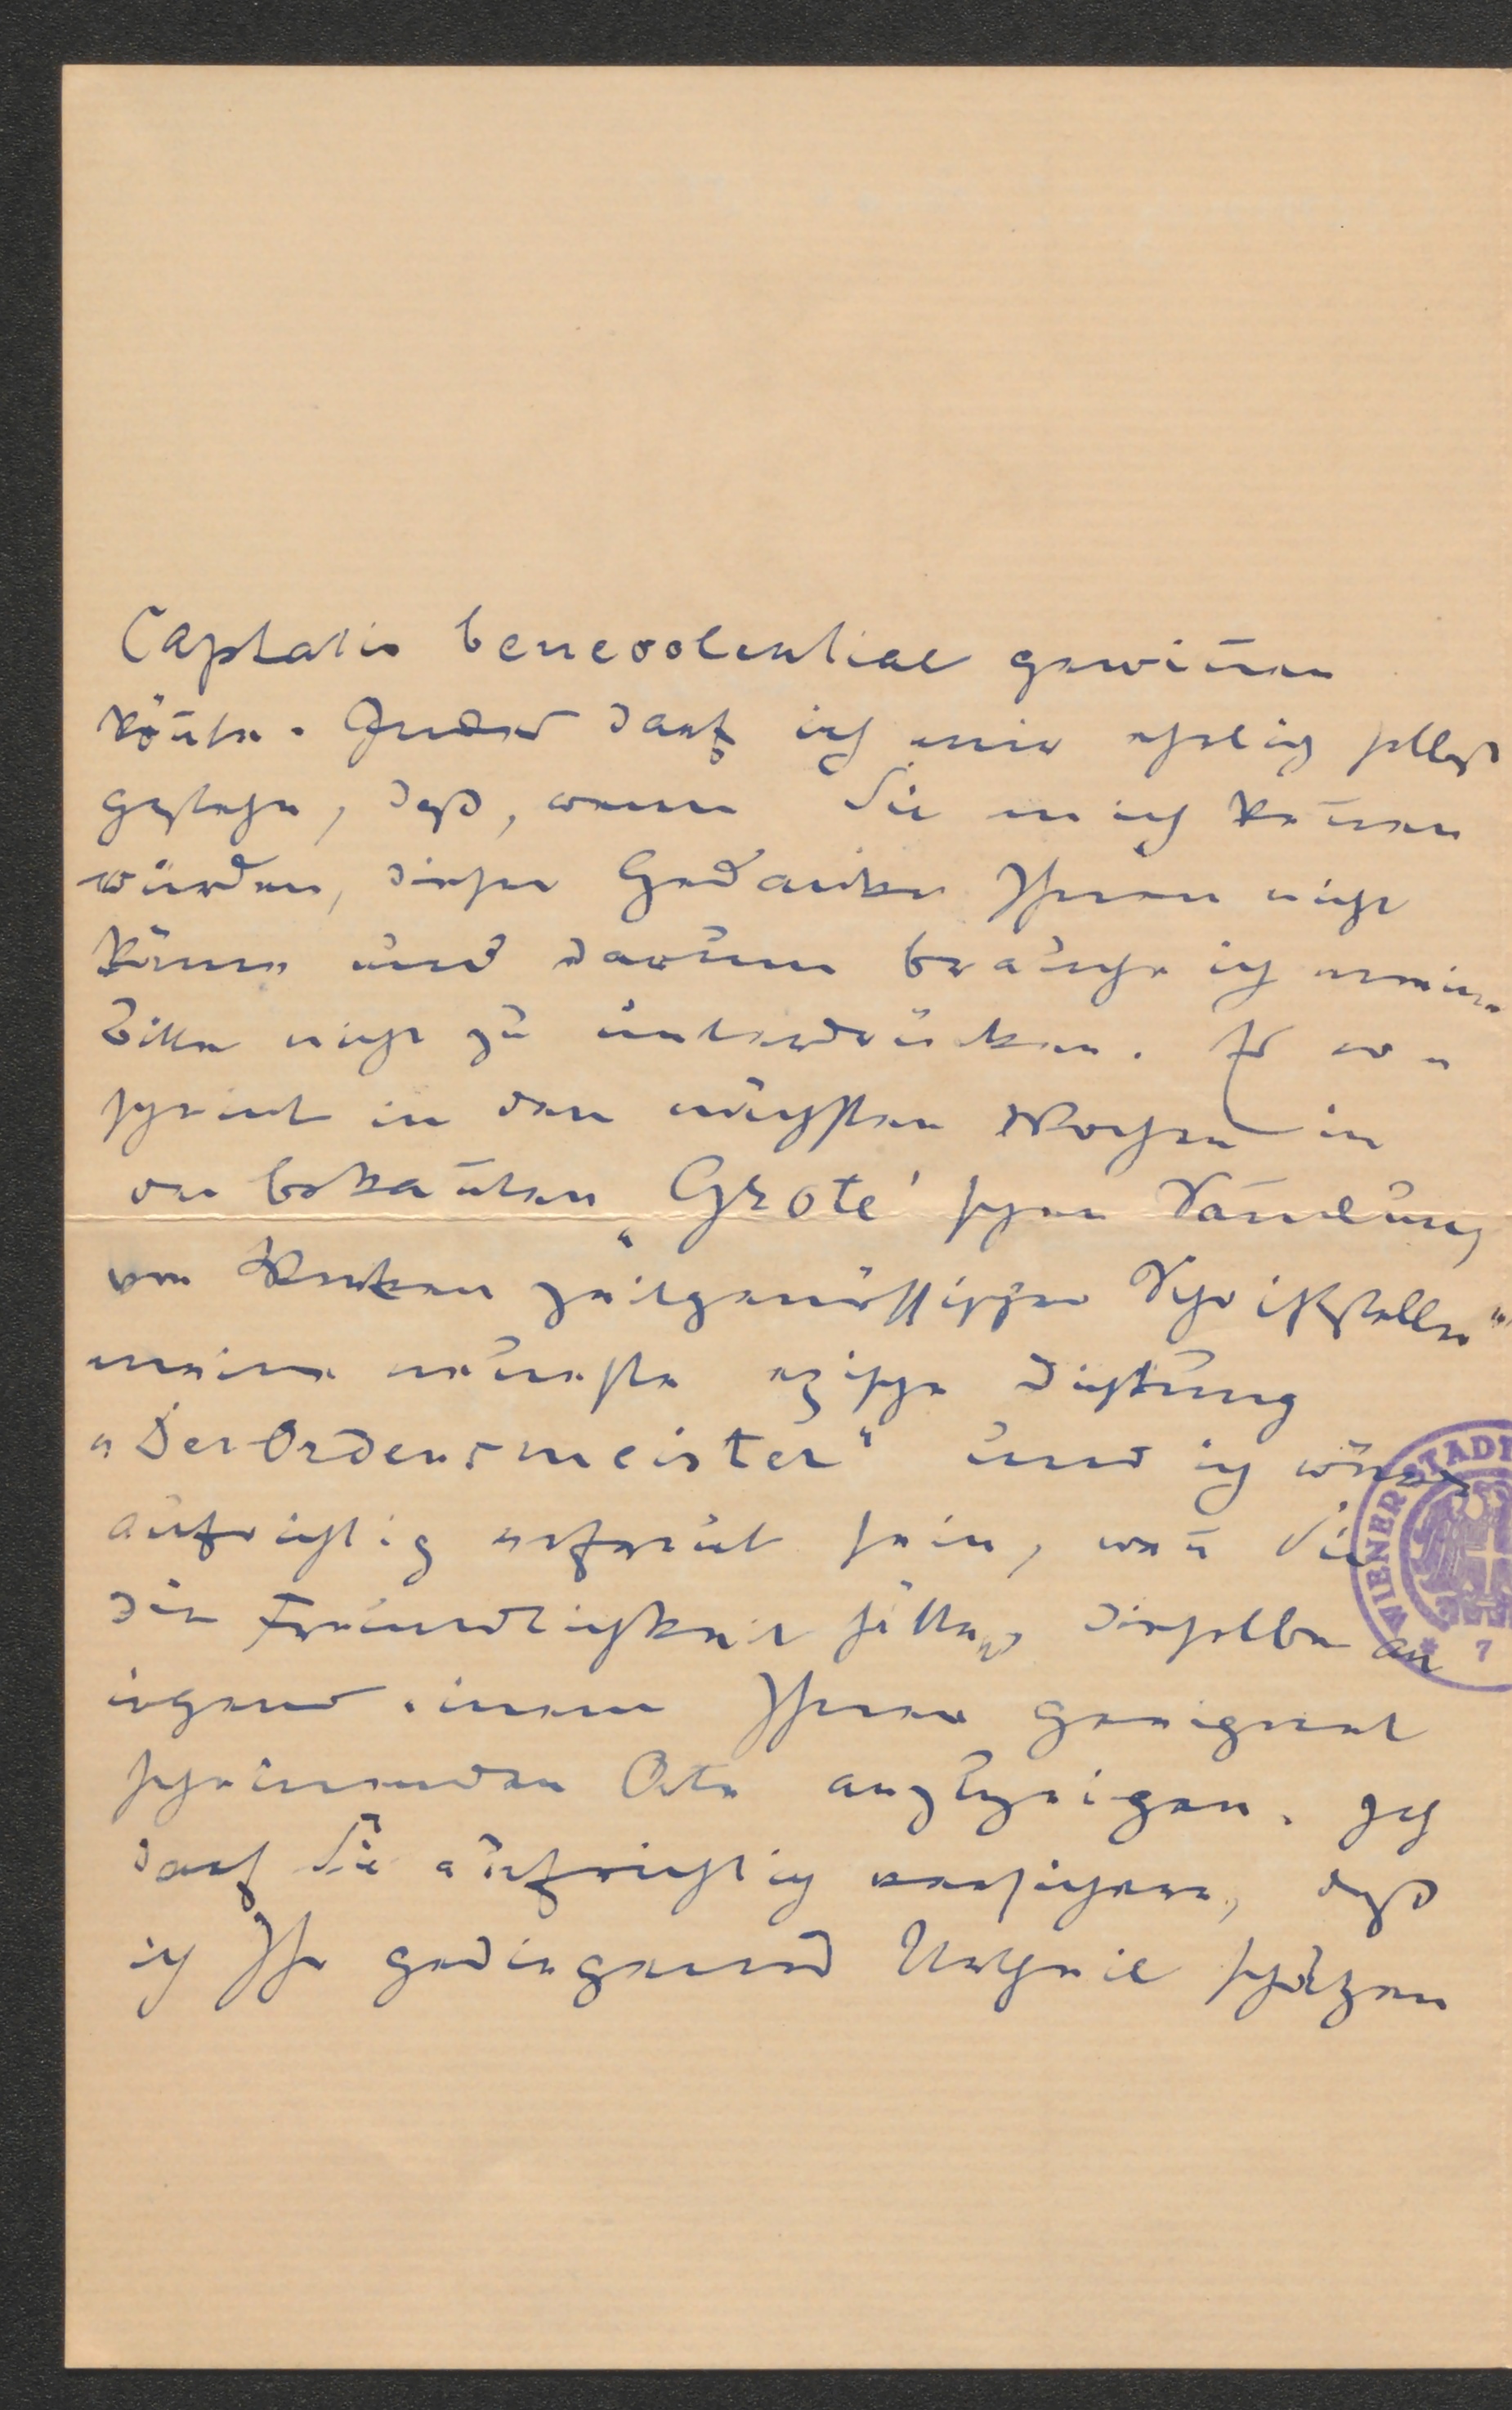 Captatio benevolentiae gewinnen
könte. Indes darf ich mir ehrlich selbst
gestehn, daß, wenn Sie mich kennen
würden, dieser Gedanke Ihnen nicht
käme und darum brauche ich meine
Bitte nicht zu unterdrücken. Es er-
scheint in den nächsten Wochen in
der bekannten „Grote'schen Sammlung
von Werken zeitgenössischer Schriftsteller“
meine neueste epische Dichtung
„Der Ordensmeister“ und ich wäre
aufrichtig erfreut sein, wenn Sie
die Freundlichkeit hätten, dieselbe an
irgend einem Ihnen geeignet
scheinenden Orte anzuzeigen. Ich
darf Sie aufrichtig versichern, daß
ich Ihr gediegenes Urtheil schätzen
WIENER STADT
7